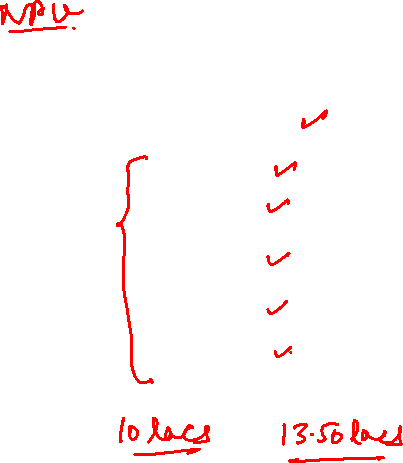 NPV
✓
✓
✓
✓
✓
✓
10 lacs 13.50 lacs